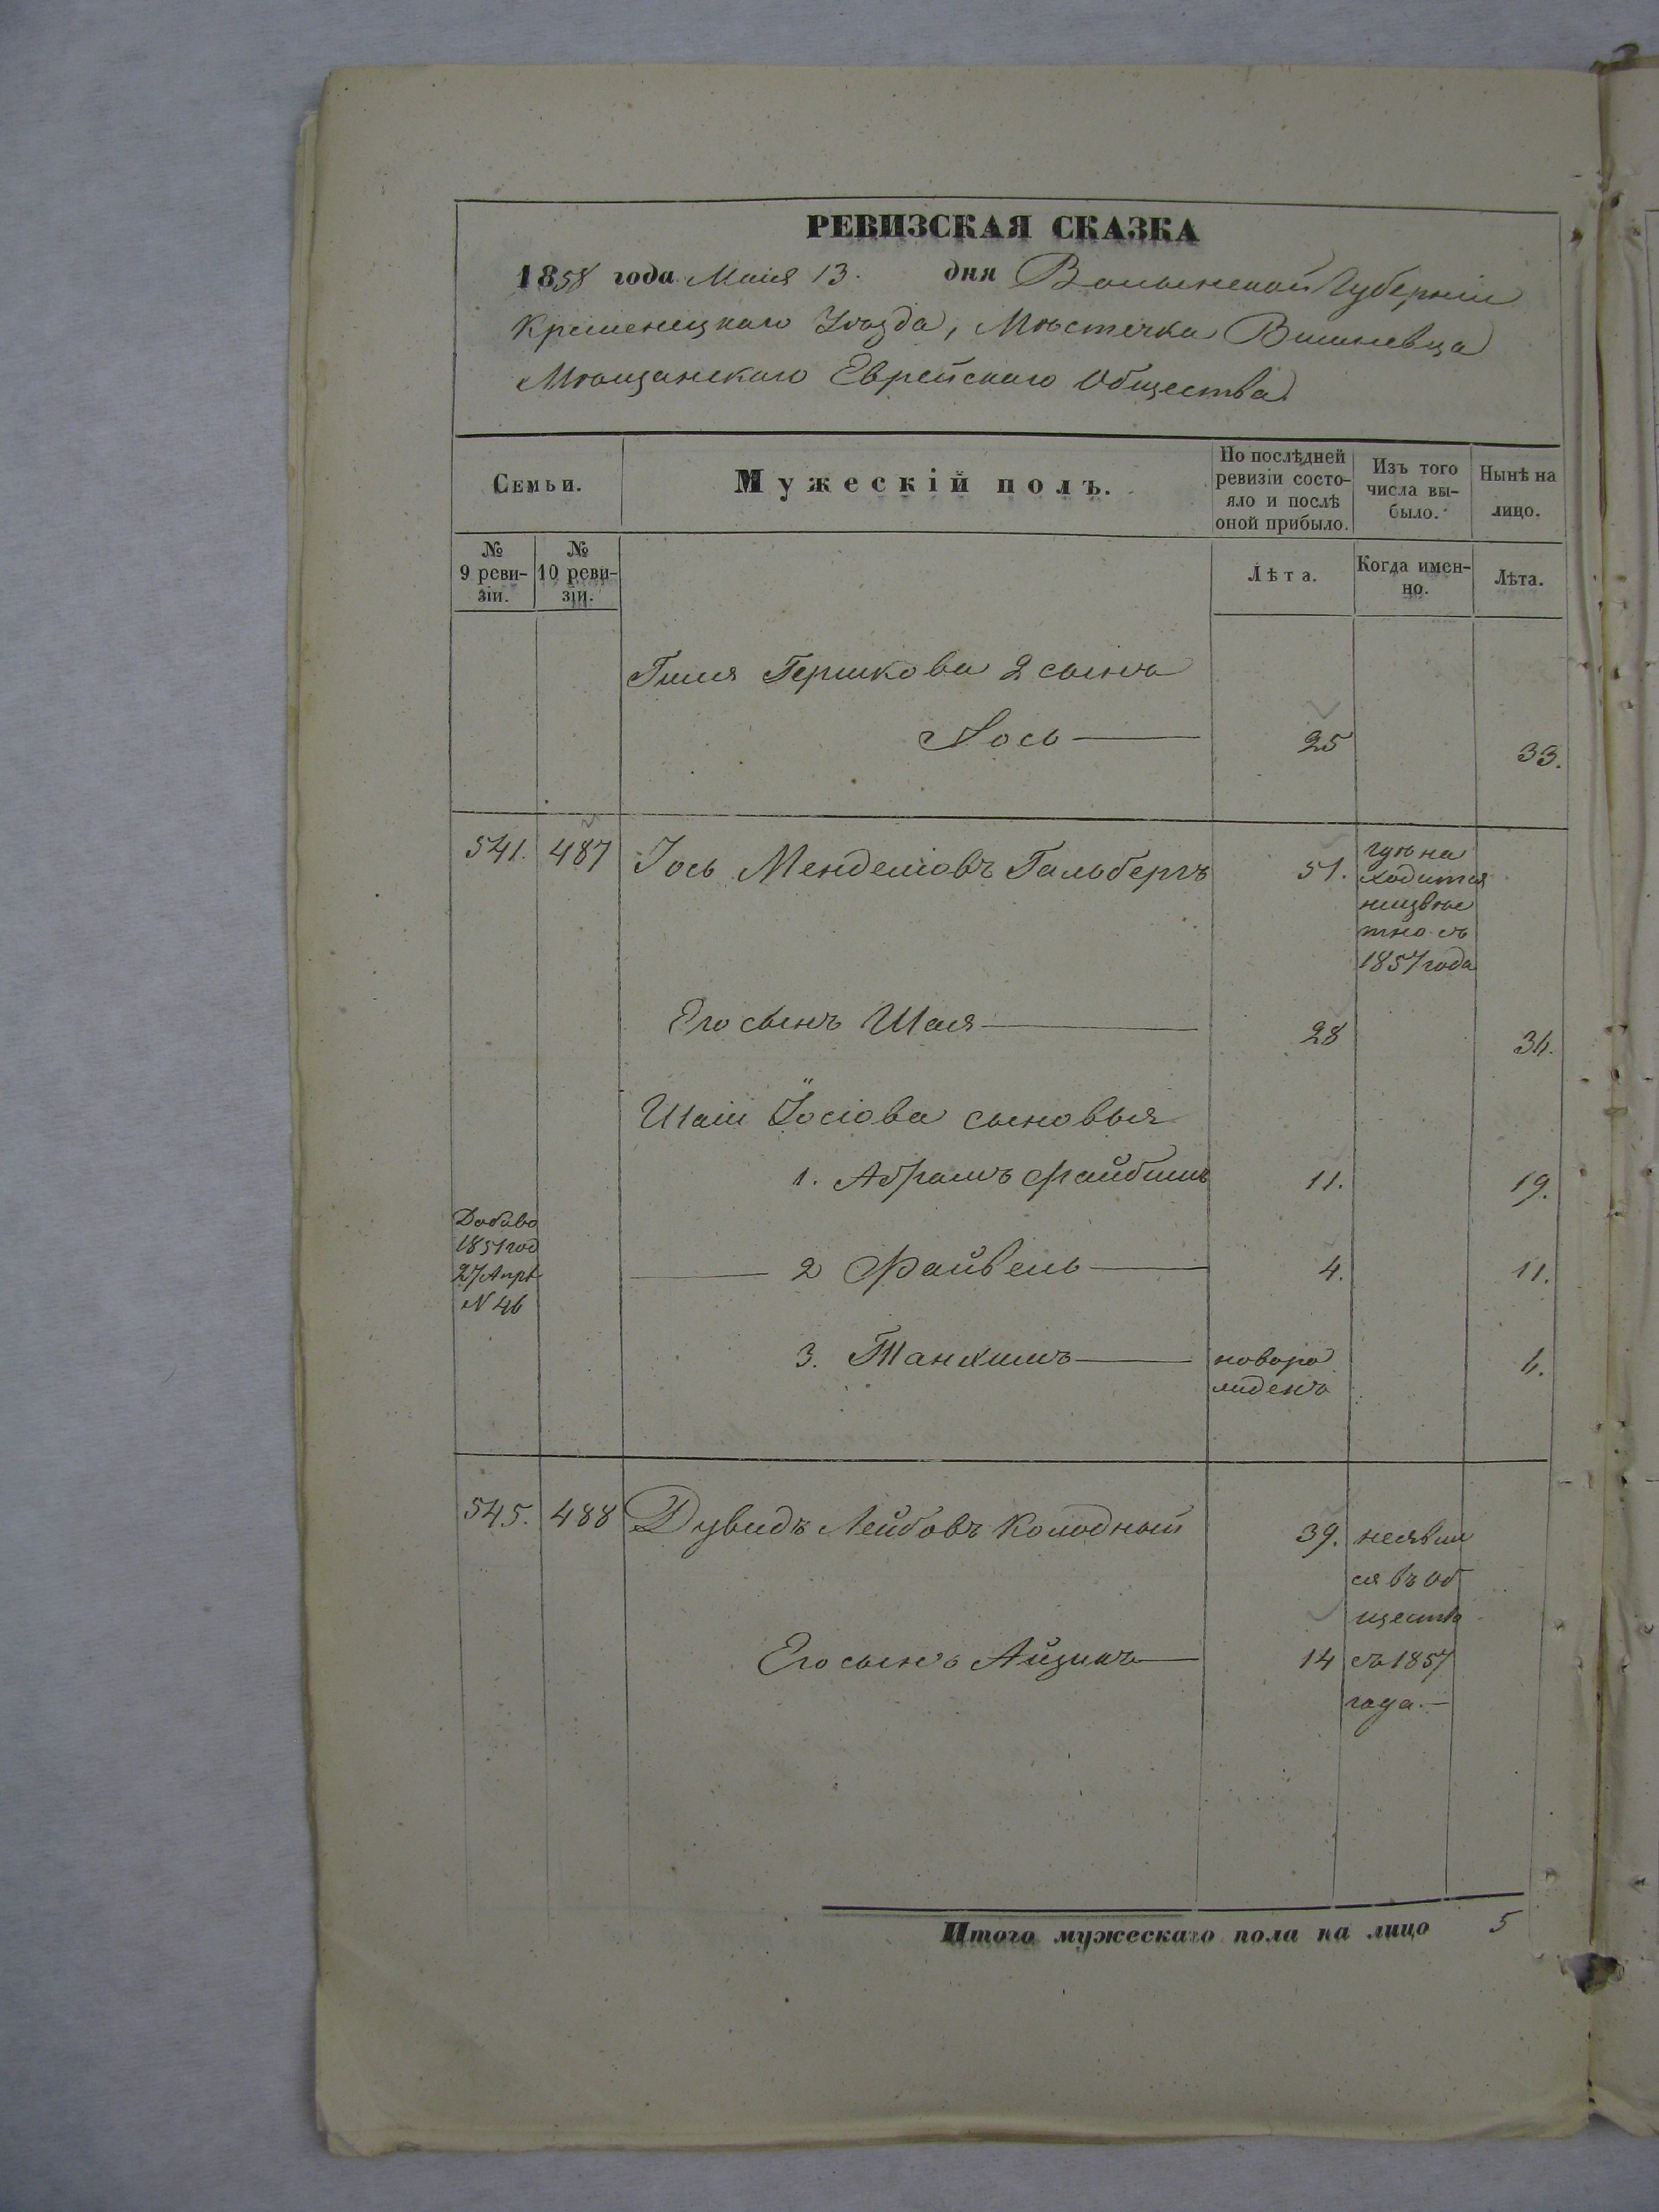 РЕВИЗСКАЯ СКАЗКА
1858 года Маія 13. дня Волынской Губерніи
Кременецкаго Уѣзда, Мѣстечка Вишневца
Мѣщанскаго Еврейскаго Общества
Семьи.
Мужескій полъ.
По послѣдней ревизіи состо-
яло и послѣ
оной прибыло.
Изъ того
числа вы-
было.
Нынѣ на
лицо.
№
9 реви-
зіи.
№
10 реви-
зіи.
Лѣта.
Когда имен-
но.
Лѣта.
Гершкова 2 сынъ
Іось 25 33.
541. 487 Іось Менделіовъ Гальбергъ 51.
гдѣ на
ходится
неизвѣс
тно съ
1857 года
Его сынъ Шая 28 36.
Шаіи Іосіова сыновья
1. Абрамъ Файбишъ 11. 19.
Добаво
1851 год
27 Апрѣ
N 46
2 Файвель 4. 11.
3. Танхимъ новоро
жденъ 6.
545. 488 Дувидъ Лейбовъ Колодный 39.
неявил
ся въ об
щество
съ 1857
года.
Его сынъ Айзикъ 14
Итого мужескаго пола на лицо 5